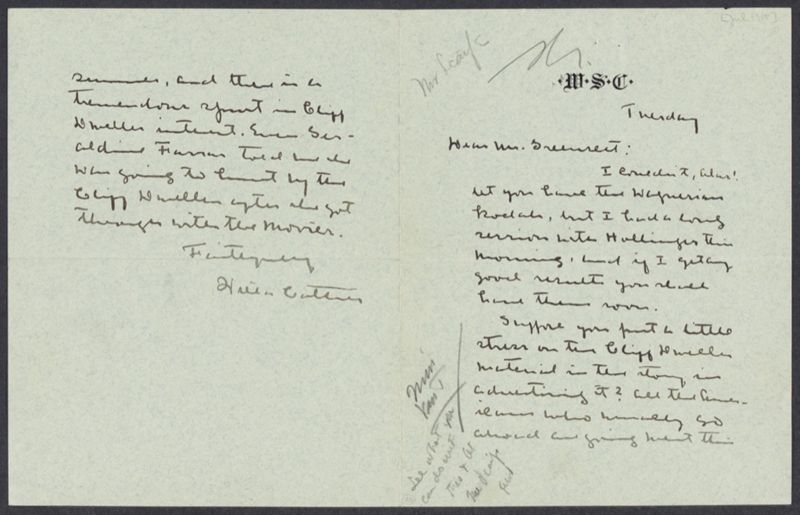 Mr Scaife
·W·S·C·
Tuesday
Dear Mr. Greenslet:
I couldn't, alas!
let you have the Wagnerian
kodaks, but I had a long
session with Hollinger this
morning, and if I get any
good results you shall
have them soon.
Suppose you put a little
stress on the Cliff Dweller
material in the story in
advertising it? All the Amer-
icans who usually go
abroad are going West this
summer, and there is a
tremendous spurt in Cliff
Dweller interest. Even Ger-
aldine Farrar told me she
was going to hunt up the
Cliff Dwellers after she got
through with the Movies.
Faithfully
Willa Cather
Miss
See what
can do with
Mr Scaife